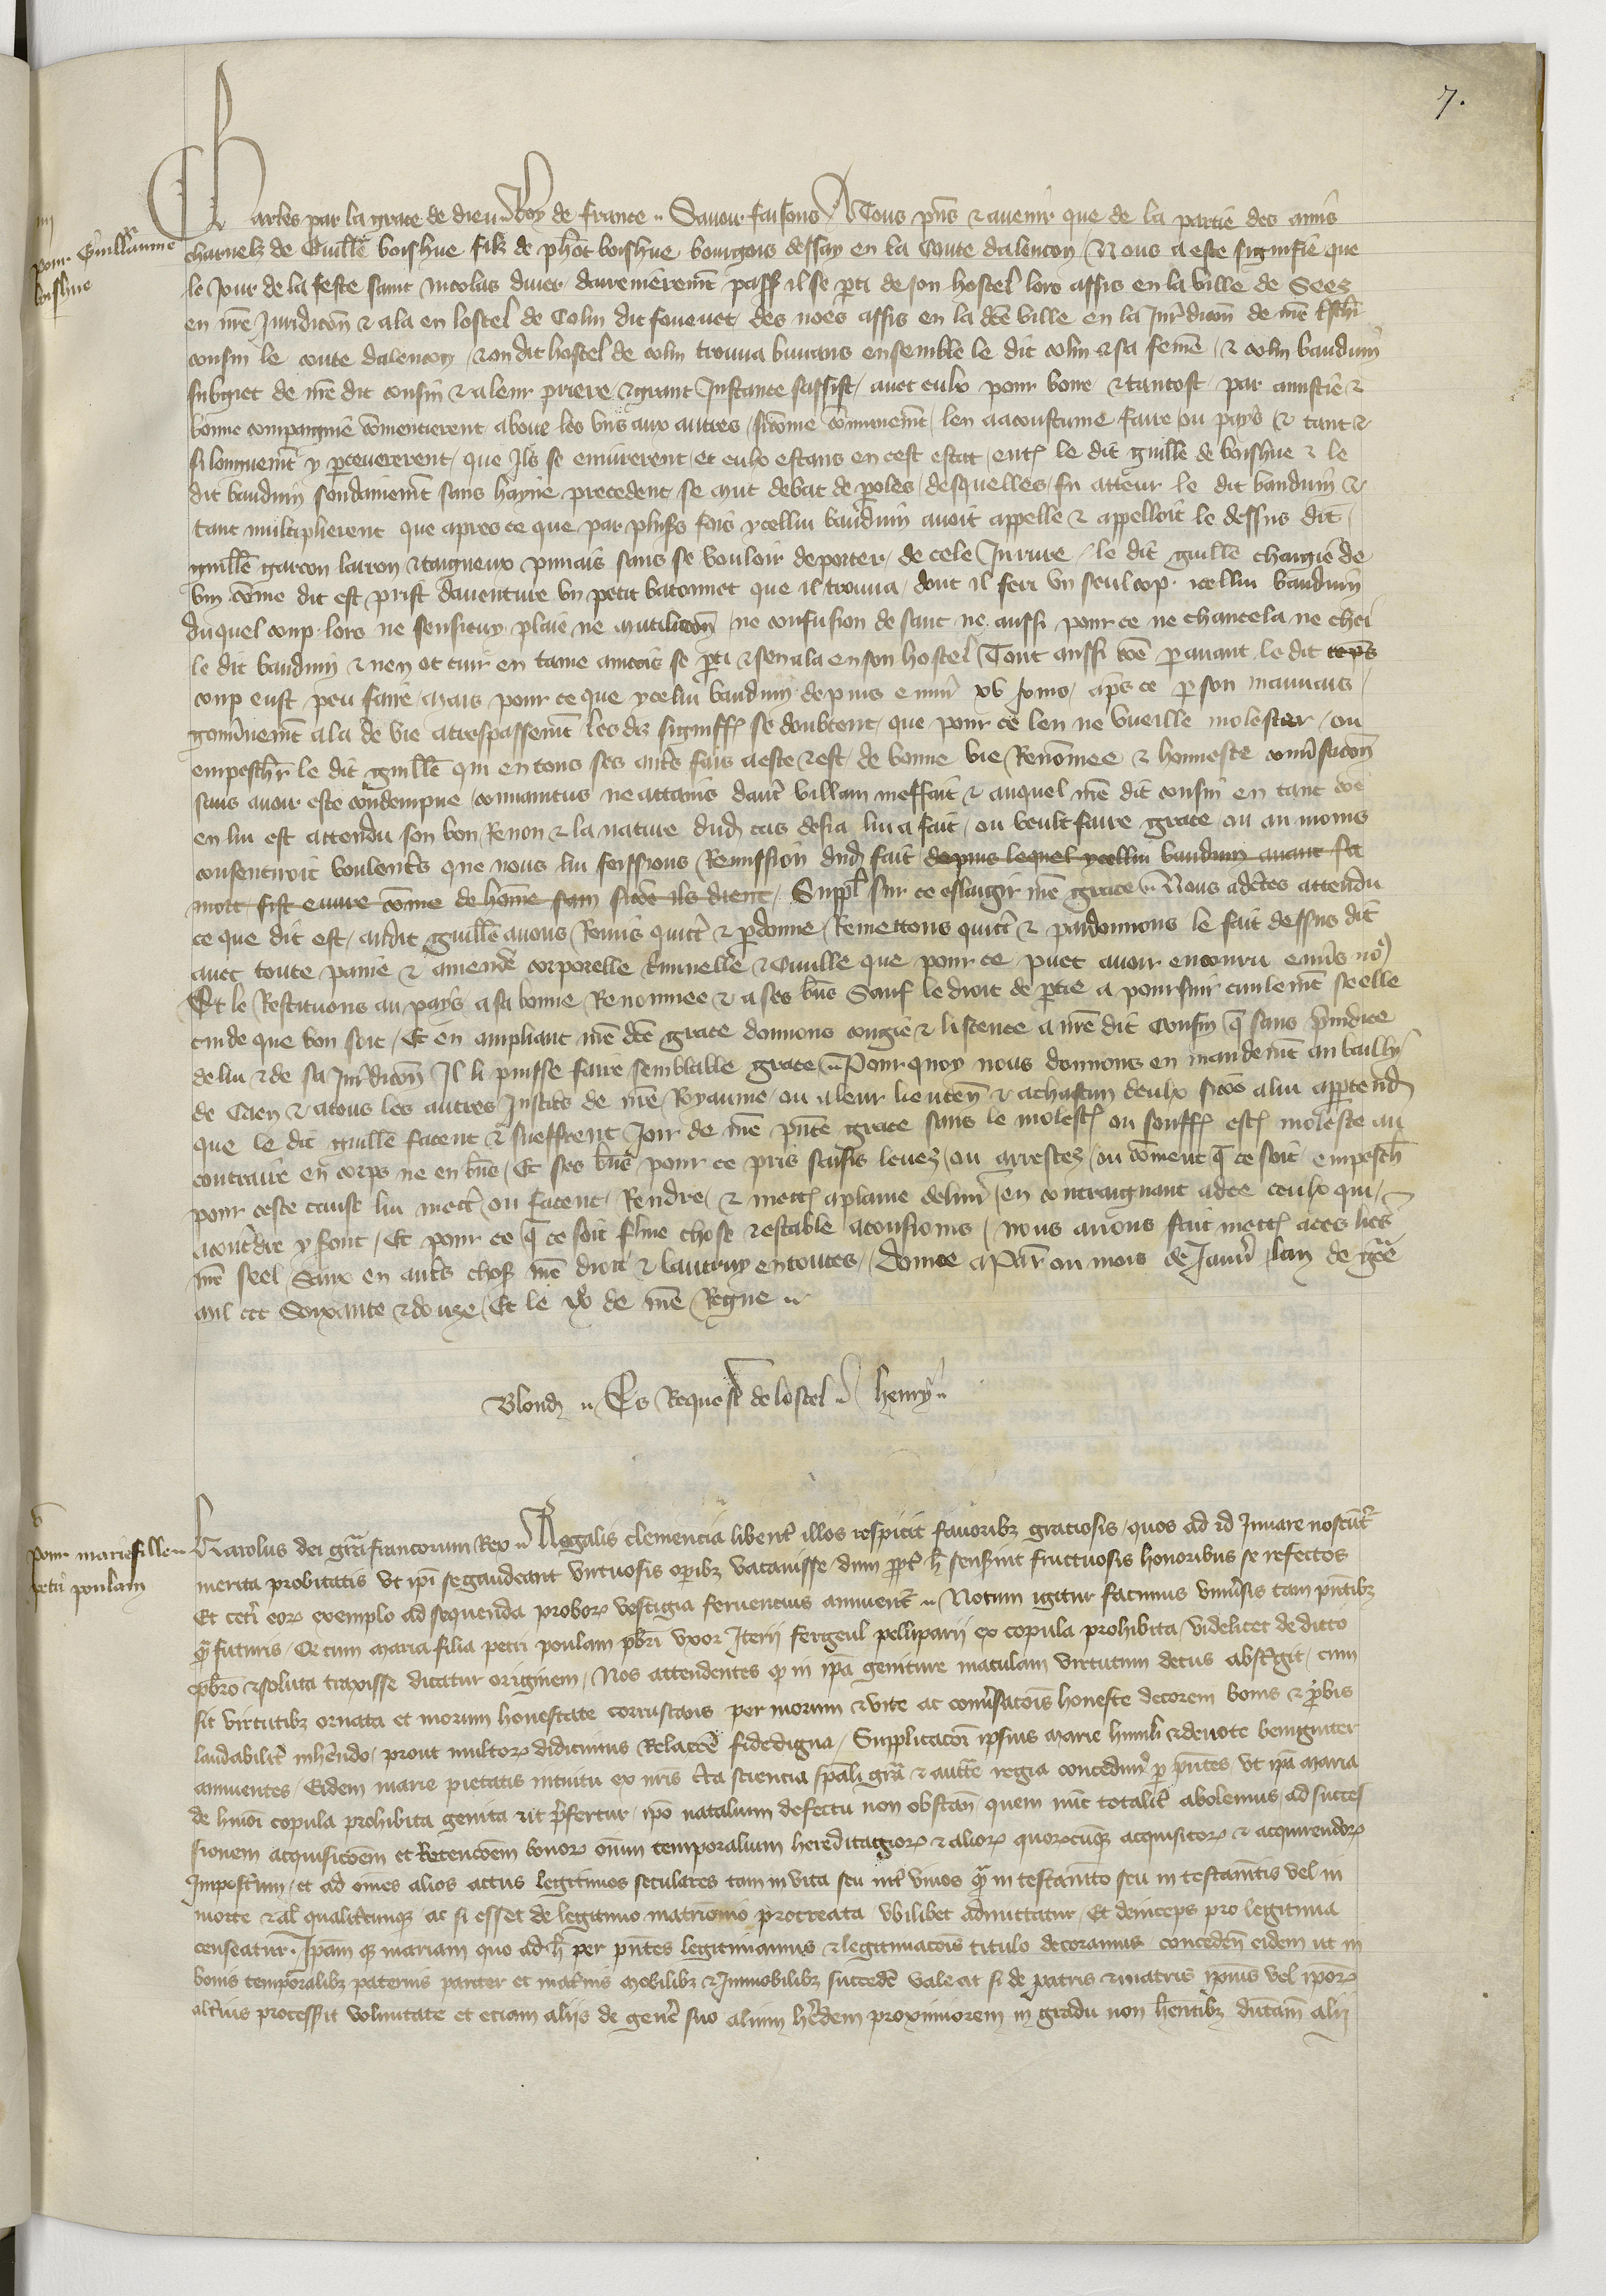 7.
iiii
pour Guillaume
boishue
Charles par la grace de dieu Roy de france Savoir faisons A Tous pñs & avenir que de la partie des amis
charnelz de Guillẽ boishue filz de phõt boishue bourgois dessay en la Conte dalencon Nous a este signifie que
le Jour de la feste saint nicolas diver darrenierem̃t passe il se pti de son hostel lors assis en la ville de Sees
en nr̃e Juridicõn & ala en lostel de Colin dit fouenet des noes assis en la dc̃e ville en la Jur̃dicõn de nr̃e
cousin le conte dalencon & on dit hostel de colin trouva buvans ensemble le dit colin & sa fem̃e & colin bauduin
subgiet de nr̃e dit cousin & a leur priere & grant Instance sassist avec eulx pour boire & tantost par amistie &
bonne compaignie cõmencierent a boire les uns aux autres sicõme cõmunem̃t len a acoustume faire ou pays & tant &
si longuem̃t y pseuererent que Ils se enivrerent et eulx estans en cest estat entre le dit guillẽ de boishue & le
dit bauduin soudainem̃t sans hayne precedent se mut debat de poles desquelles fu atteur le dit bauduin &
tant multiplierent que apres ce que par plus's fois ycellui bauduin avoit appelle & appelloit le dessus dit
guillẽ garcon larron & taigneux punais sans se vouloir deporter de cele Iniure le dit guillẽ chargie de
vin cõme dit est prist daventure un petit batonnet que il trouva dont il feri un seul cop icellui bauduin
duquel coup lors ne sensituy plaie ne mutilacõn ne confusion de sanc ne aussi pour ce ne chancela ne chei
le dit bauduin & nen ot cuir entame aincois se pti & sen ala en son hostel Tout aussi cõe pavant le dit
coup eust peu faire Mais pour ce que ycelui bauduin depuis environ xv jours aps ce p son mauvais
gouvernem̃t ala de vie a trespassem̃t les dis signiff se doubtent que pour ce len ne vueille molester ou
empescher le dit guillẽ qui en tous ses autres fais a este & est de bonne vie Renõmee & honneste conv̾sacõn
sans avoir este condempne convaincus ne attains dautre villain meffait & auquel nr̃e dit cousin en tant cõe
en lui est attendu son bon Renon & la nature dud cas desia lui a fait ou veult faire grace ou au moins
consentiroit voulent's que nous lui feissions Remission dud fait depuis lequel ycellui bauduin avant sa
mort fist euvre cõme de hõme sain sicõe ils dient Suppl sur ce eslargir nr̃e grace Nous adc̃tes attendu
ce que dit est audit guillẽ avons Remis quitte & pdonne Remettons quittons & pardonnons le fait dessus dit
avec toute paine & amende corporelle criminelle & Civille que pour ce puet avoir encouru env̾s no
Et le Restituons au pays a sa bonne Renommee & a ses biẽs Sauf le droit de ptie a poursuir civilem̃t se elle
cuide que bon soit Et en ampliant nr̃e dc̃e grace donnons congie & licence a nr̃e dit Cousin q̃ sans preiudice
de lui & de sa Jur̃dicõn Il li puisse faire semblable grace Pour quoy nous donnons en mandem̃t au bailly
de Caen & a tous les autres Justic's de nr̃e Royaume ou a leur lieuten̄ & a chascun deulx sicõe a lui aptend
que le dit guillẽ facent & seuffrent Joir de nr̃e pñte grace sans le molester ou souffrir estre moleste au
contraire en corps ne en biẽs Et ses biẽs pour ce pris saisis levez ou arrestez ou cõment q̃ ce soit empesch
pour ceste cause lui mettre ou facent Rendre & mettre a plaine deliv̾ en contraignant ad ce ceulx qui
a contraindre y sont Et pour ce q̃ ce soit ferme chose & estable a tousiours nous avons fait mettre a ces lrẽs
nr̃e seel Sauf en autres choses nr̃e droit & lautruy en toutes Donne a Paris ou mois de Janvier lan de grace
mil ccc Soixante & douze Et le ixe de nr̃e Regne
Blond Es Requestes de lostel henry
v
pour marie fille
petri poulain
Karolus dei grã francorum Rex Regalis clemencia libent̾ illos respicit favoribz graciosis quos ad id Juvare noscunt̾
merita probitatis ut ipi se gaudeant virtuosis opibz vacavisse dum ppt̾ h̃ senserint fructuosis honoribus se refectos
Et ceti eoꝝ exemplo ad sequenda proboꝝ vestigia ferventius animent̾ Notum igitur facimus univ̾sis tam pñtibz
q̃ futuris Qe cum Maria filia petri poulain pbrĩ uxor Iterii fergeul pelliparii ex copula prohibita videlicet de dicto
pbrõ & soluta traxisse dicatur originem Nos attendentes q in ipã geniture maculam virtutum decus abstergit cum
sit virtutibz ornata et morum honestate corruscans per morum & vite ac conv̾sacõis honeste decorem bonis & pbis
laudabilit̾ inherendo prout multoꝝ didicimus Relacõe fidedigna Supplicacõi ipsius Marie humili & devote benigniter
annuentes Eidem marie pietatis intuitu ex nr̃is cẽta sciencia spãli grã & auctẽ regia concedim̾ p pñtes ut ipã Maria
de hmõi copula prohibita genita ut p̃fertur ipõ natalium defectu non obstan̄ quem nũc totalit̾ abolemus ad succes
sionem acquisicõem et Retencõem bonoꝝ oĩum temporalium hereditagioꝝ & alioꝝ quoꝝcũqꝫ acquisitoꝝ & acquirendoꝝ
Imposterum et ad om̃es alios actus legitimos seculares tam in vita seu int̾ vivos q̃ in testam̃to seu in testam̃tis vel in
morte & al' qualitercunqꝫ ac si esset de legitimo matrĩonio procreata ubilibet admittatur Et deinceps pro legitima
censeatur Ipãm qꝫ mariam quo ad h̃ per pñtes legitimamus & legitimacõis titulo decoramus conceden̄ eidem ut in
bonis temporalibz paternis pariter et mat̾nis Mobilibz & Immobilibz succede valeat si de patris & matris ipius vel ipoꝝ
alt̾ius processerit voluntate et etiam aliis de gene̾ suo alium heredem proximiorem in gradu non hentibz dũtam̃ alii